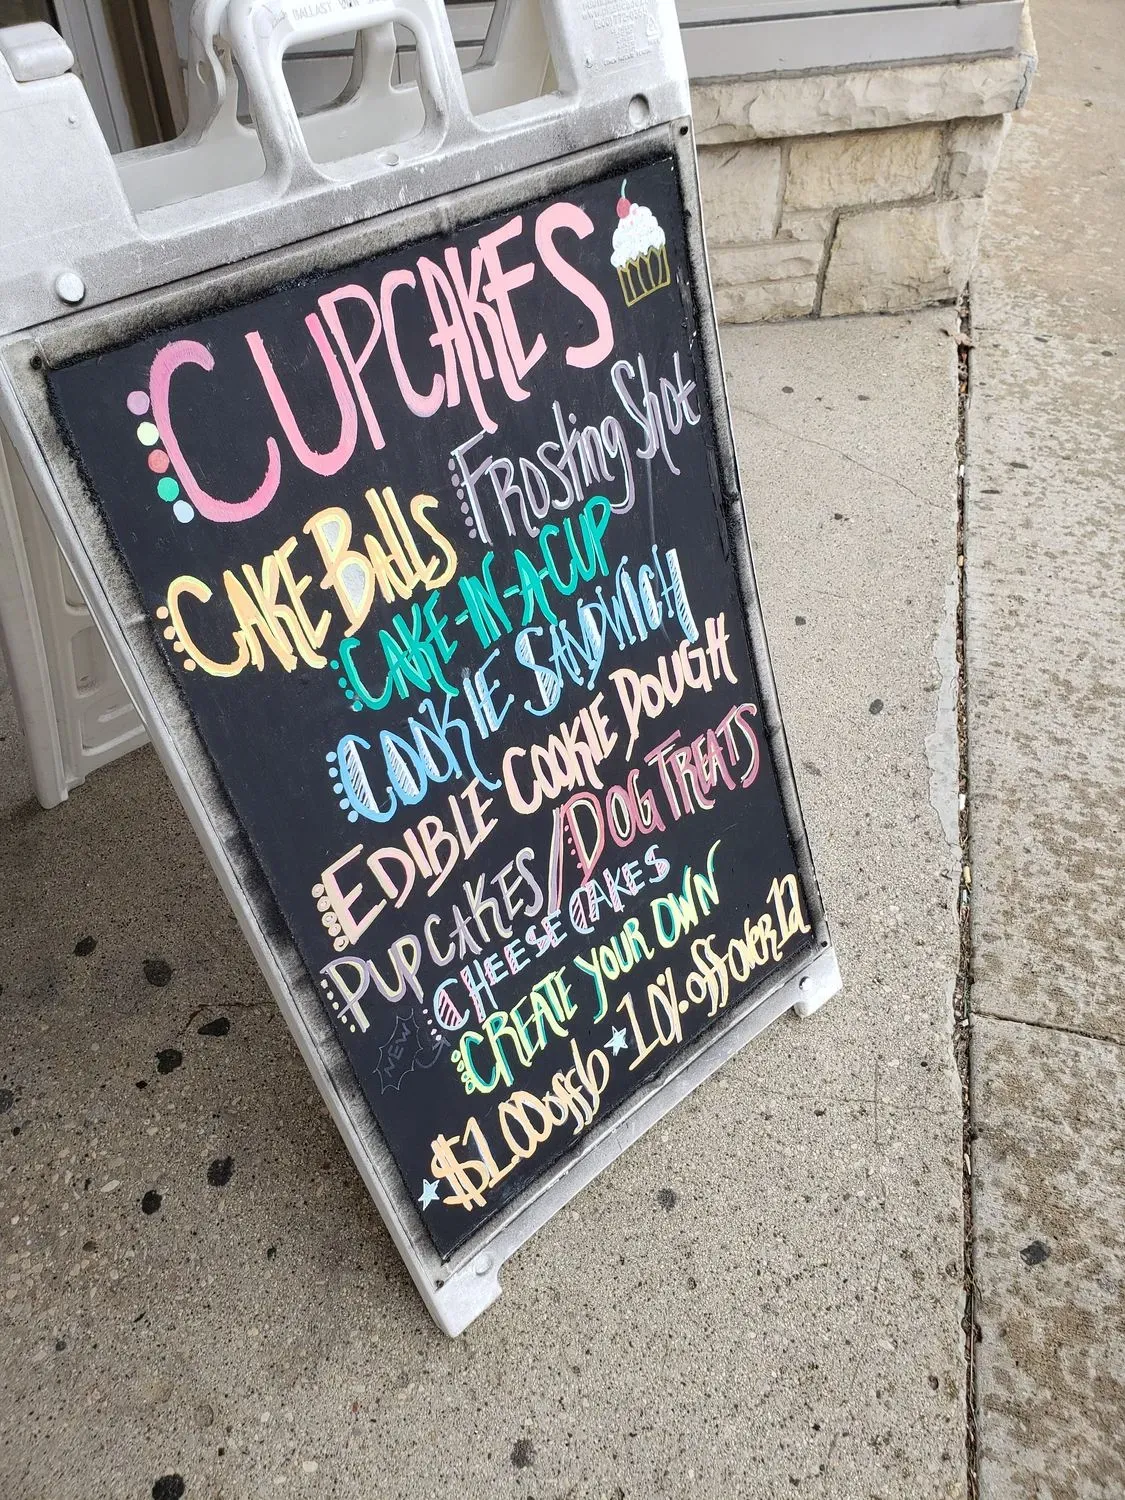 CUPCAKES
Frosting Shot
CAKE BAlls
CAKE-IN-A-CUP
COOKIE SANDWICH
EDIBLE COOKIE DOUGH
PUPCAKES/DOG TREATS
CHEESECAKES
NEW
CREATE YOUR OWN
$1.00 off 6 10% off over 12